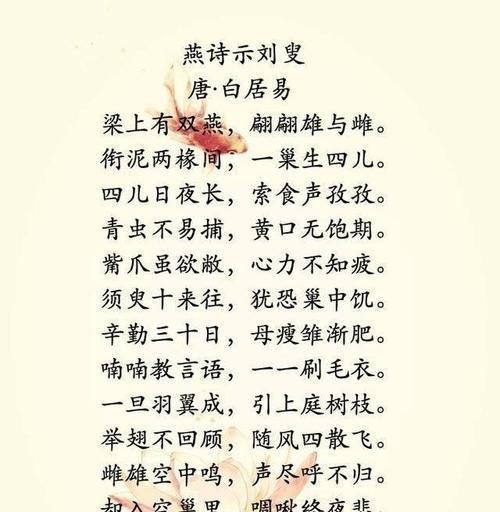 燕诗示刘叟
唐·白居易
梁上有双燕，翩翩雄与雌。
衔泥两椽间，一巢生四儿。
四儿日夜长，索食声孜孜。
青虫不易捕，黄口无饱期。
觜爪虽欲敝，心力不知疲。
须臾十来往，犹恐巢中饥。
辛勤三十日，母瘦雏渐肥。
喃喃教言语，一一刷毛衣。
一旦羽翼成，引上庭树枝。
举翅不回顾，随风四散飞。
雌雄空中鸣，声尽呼不归。
却入空巢里，啁啾终夜悲。